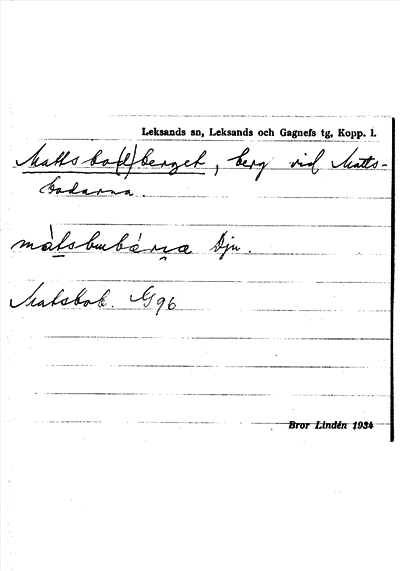 Leksands sn, Leksands och Gagnefs tg, Kopp. l.
Mattsbo(d)berget, berg vid Matts-
bodarna.
màtsbubárɪa Dju.
Matsbob. G96
Bror Lindén 1934